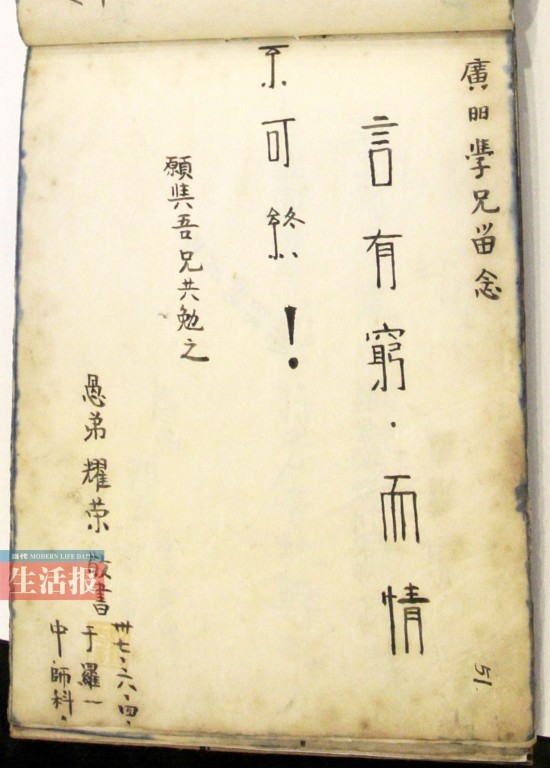 廣明學兄畱念
言有窮·而情
不可終!
願與吾兄共勉之
愚弟耀荣敬書
卅七·六·四·
于羅一
中師科·
51.
當代 MODERN LIFE DAILY
生活报